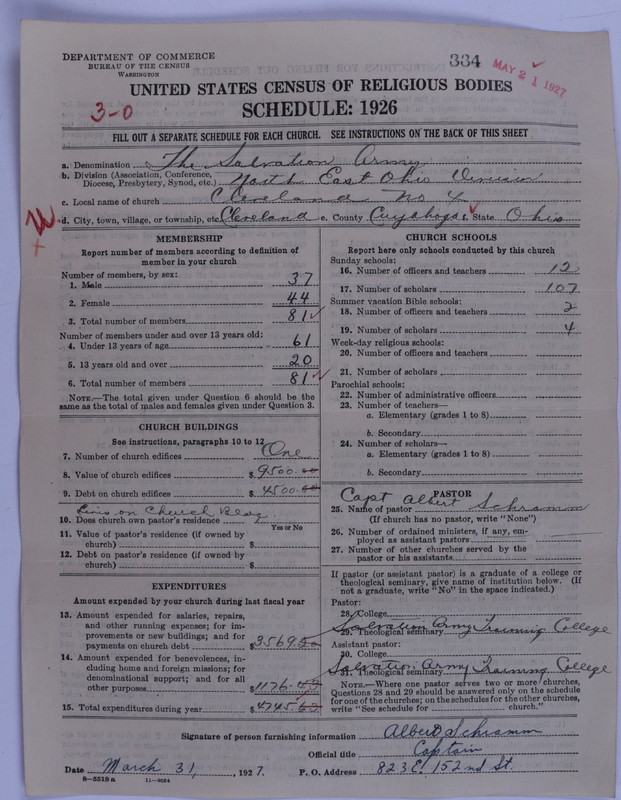 DEPARTMENT OF COMMERCE
BUREAU OF THE CENSUS
WASHINGTON
334
MAY 21 1927
UNITED STATES CENSUS OF RELIGIOUS BODIES
3-0
SCHEDULE: 1926
FILL OUT A SEPARATE SCHEDULE FOR EACH CHURCH. SEE INSTRUCTIONS ON THE BACK OF THIS SHEET
a. Denomination The Salvation Army
b. Division (Association, Conference, Diocese, Presbytery, Synod, etc.) North East Ohio Division
c. Local name of church Cleveland No 4
d. City, town, village, or township, etc. Cleveland e. County Cuyahoga f. State Ohio
W
MEMBERSHIP
Report number of members according to definition of
member in your church
Number of members, by sex:
1. Male 37
2. Female 44
3. Total number of members 81
Number of members under and over 13 years old:
4. Under 13 years of age 61
5. 13 years old and over 20
6. Total number of members 81
NOTE.—The total given under Question 6 should be the
same as the total of males and females given under Question 3.
CHURCH BUILDINGS
See instructions, paragraphs 10 to 12
7. Number of church edifices One
8. Value of church edifices $ 9500.00
9. Debt on church edifices $ 4500.00
on Church Bldg
10. Does church own pastor's residence
Yes or No
11. Value of pastor's residence (if owned by
church) $
12. Debt on pastor's residence (if owned by
church) $
EXPENDITURES
Amount expended by your church during last fiscal year
13. Amount expended for salaries, repairs,
and other running expenses; for im-
provements or new buildings; and for
payments on church debt $ 3569.
14. Amount expended for benevolences, in-
cluding home and foreign missions; for
denominational support; and for all
other purposes $ 1176.
15. Total expenditures during year $ 4745
CHURCH SCHOOLS
Report here only schools conducted by this church
Sunday schools:
16. Number of officers and teachers 12
17. Number of scholars 107
Summer vacation Bible schools:
18. Number of officers and teachers 2
19. Number of scholars 4
Week-day religious schools:
20. Number of officers and teachers
21. Number of scholars
Parochial schools:
22. Number of administrative officers
23. Number of teachers—
a. Elementary (grades 1 to 8)
b. Secondary
24. Number of scholars—
a. Elementary (grades 1 to 8)
b. Secondary
PASTOR
Capt Albert Schramm
25. Name of pastor
(If church has no pastor, write "None")
26. Number of ordained ministers, if any, em-
ployed as assistant pastors
27. Number of other churches served by the
pastor or his assistants
If pastor (or assistant pastor) is a graduate of a college or
theological seminary, give name of institution below. (If
not a graduate, write "No" in the space indicated.)
Pastor:
28. College
Salvation Army Training College
29. Theological seminary
Assistant pastor:
30. College
Salvation Army Training College
31. Theological seminary
NOTE.—Where one pastor serves two or more churches,
Questions 28 and 29 should be answered only on the schedule
for one of the churches; on the schedules for the other churches,
write "See schedule for church."
Signature of person furnishing information Albert Schramm
Official title Captain
Date March 31, 1927. P. O. Address 823 E. 152nd St.
8-5518a 11-9034